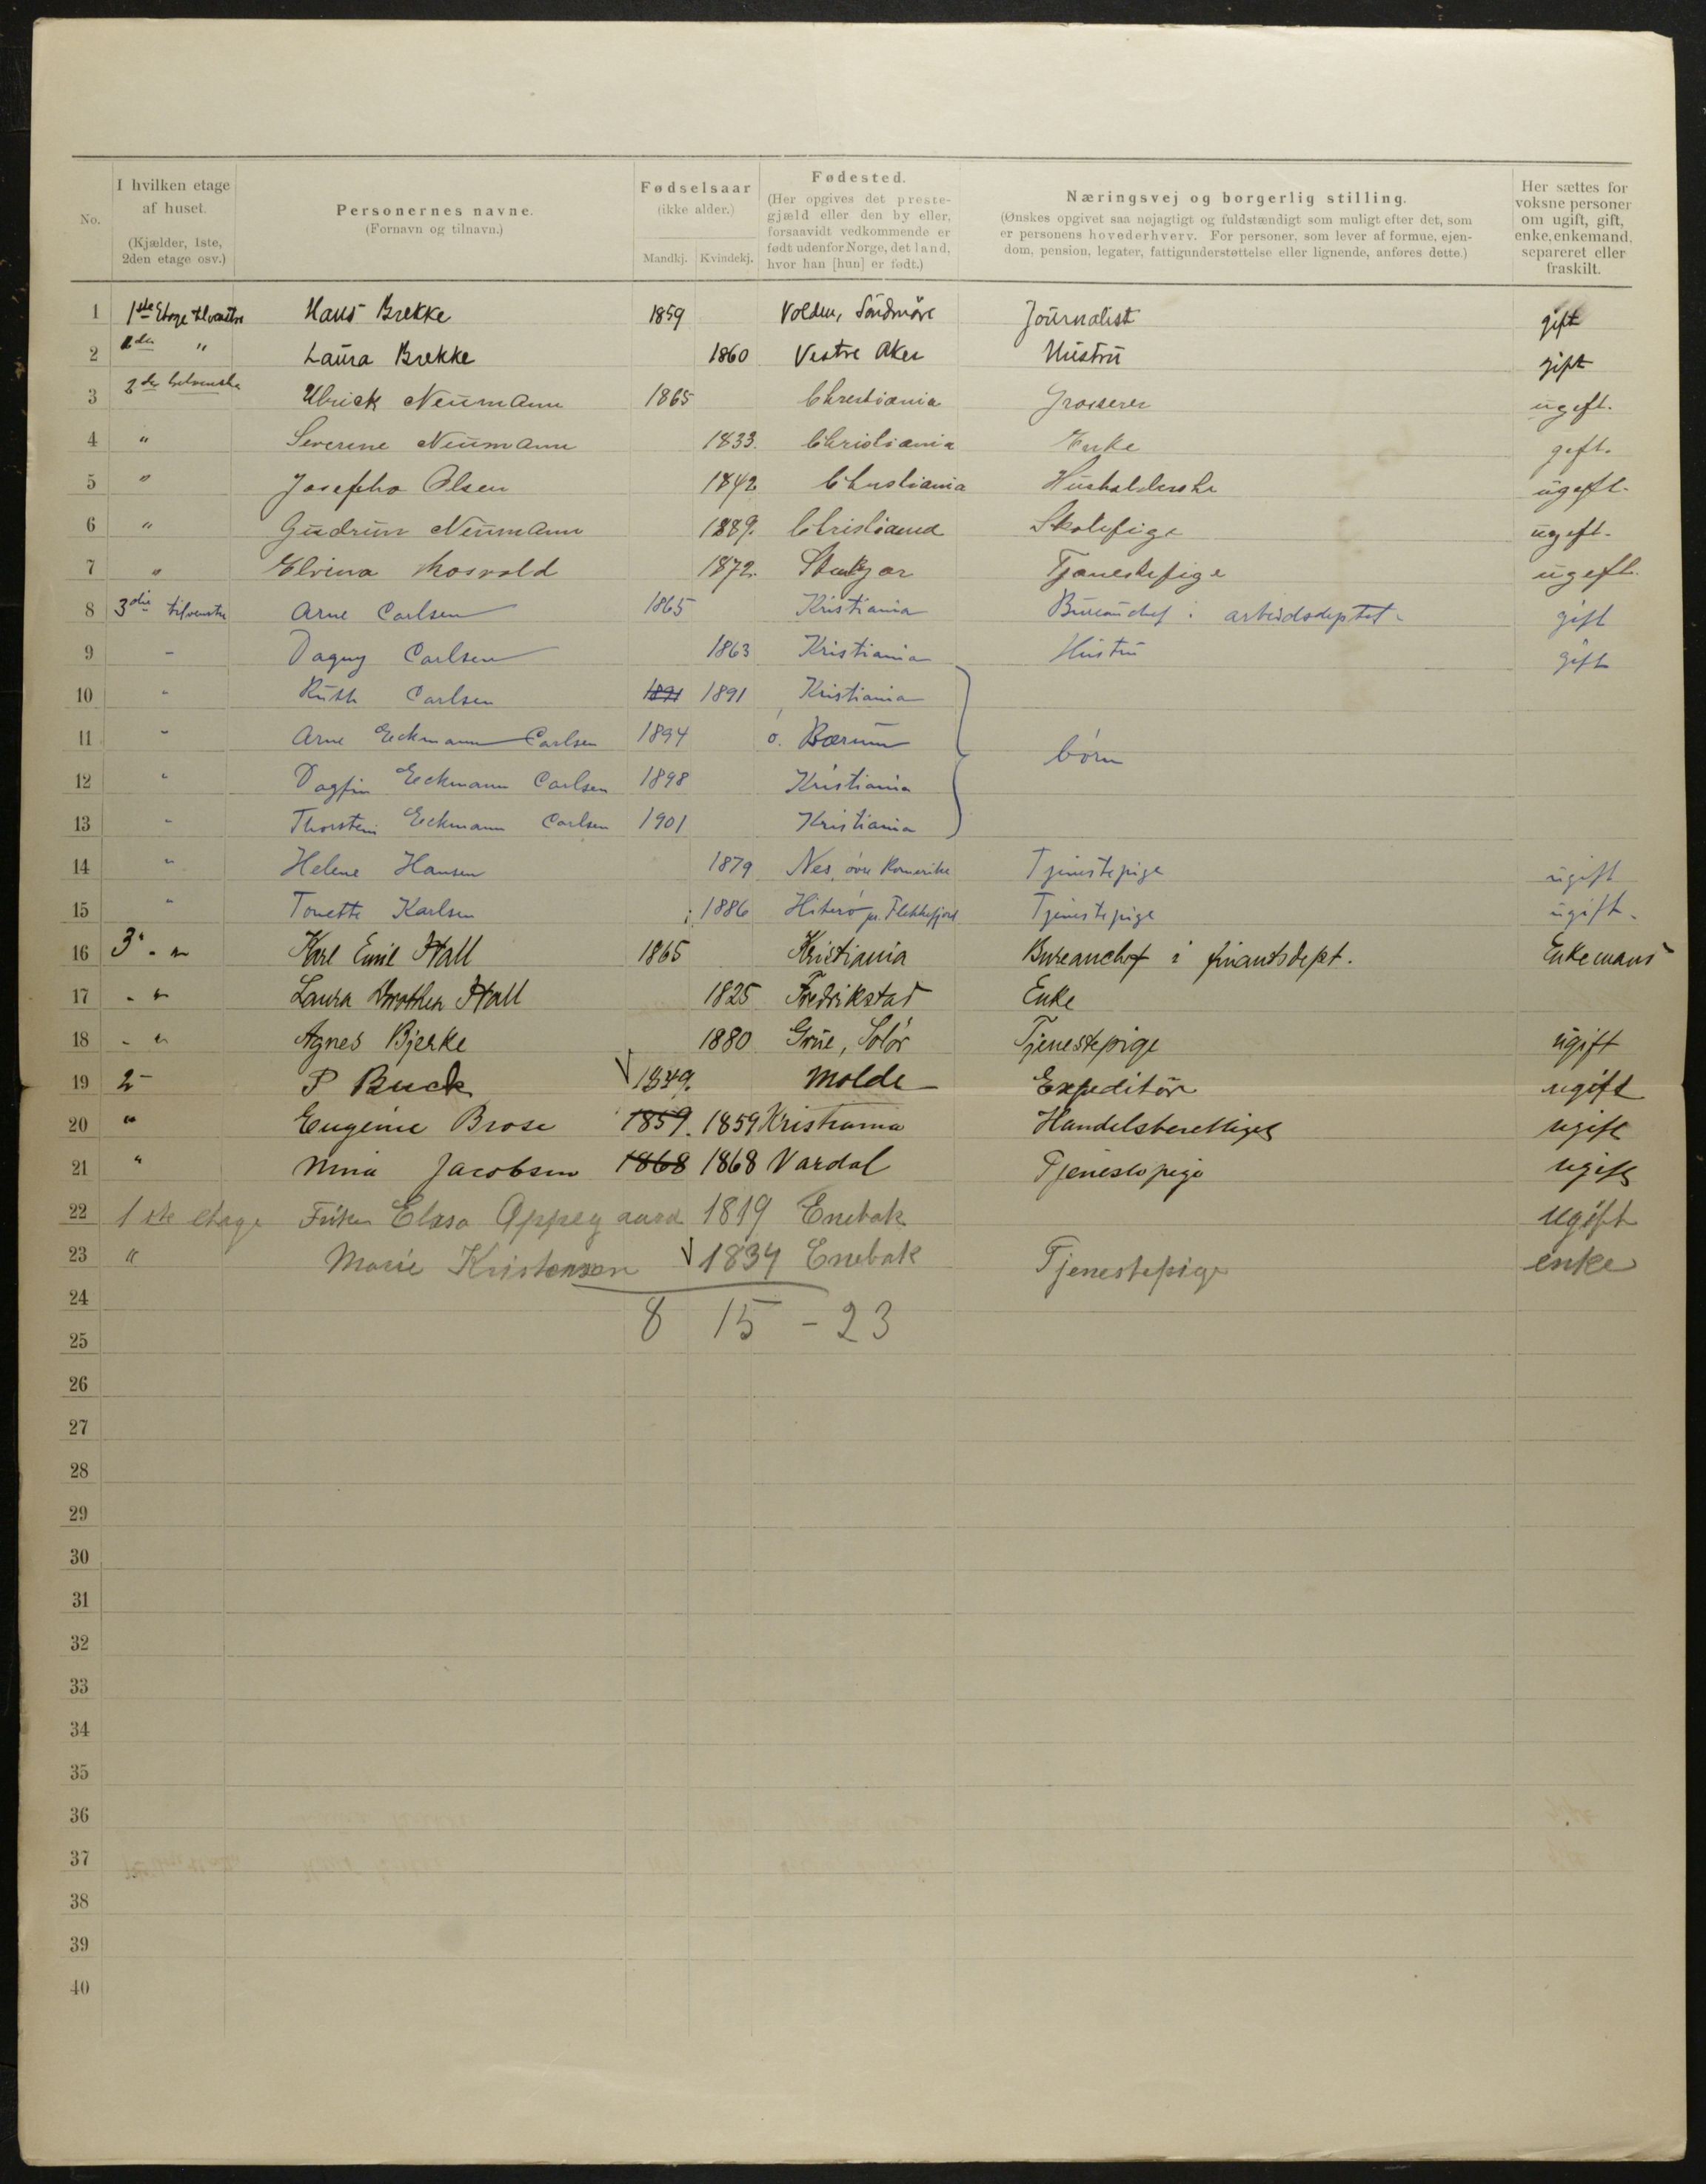 No.
I hvilken etage af huset.
(Kjælder, 1ste, 2den etage osv.)
Personernes navne.
(Fornavn og tilnavn.)
Fødselsaar
(ikke alder.)
Mandkj. Kvindekj.
Fødested.
(Her opgives det preste-
gjæld eller den by eller,
forsaavidt vedkommende er
født udenfor Norge, det land,
hvor han [hun] er født.)
Næringsvej og borgerlig stilling.
(Ønskes opgivet saa nøjagtigt og fuldstændigt som muligt efter det, som
er personens hovederhverv. For personer, som lever af formue, ejen-
dom, pension, legater, fattigunderstøttelse eller lignende, anføres dette.)
Her sættes for
voksne personer
om ugift, gift,
enke, enkemand,
separeret eller
fraskilt.
1 1ste Etage tilvenstre Hans Brekke 1859 Volden, Söndmöre Journalist gift
2 " Laura Brekke 1860 Vestre Aker Hustru gift
3 2de Ulrick Neumann 1865 Christiania Grosserer ugift.
4 " Severine Neumann 1833. Christiania Enke gift.
5 " Josepha Olsen 1842 Christiania Husholderske ugift.
6 " Gudrun Neumann 1889. Skolepige ugift.
7 " Elvina 1872. Tjænestepige ugift.
8 3die tilvenstre Arne Carlsen 1865 Kristiania Bureauchef i arbeidsdeptet. gift
9 - Dagny Carlsen 1863 Kristiania Hustru gift
10 " Ruth Carlsen 1891 1891 Kristiania
11 " Arne Eckmann Carlsen 1894 ö. Bærum børn
12 " Dagfin Eckmann Carlsen 1898 Kristiania
13 " Thorstein Eckmann Carlsen 1901 Kristiania
14 " Helene Hansen 1879 Nes, övre Romerike Tjenestepige ugift
15 " Tonette Karlsen 1886 Hiterö pr. Flekkefjord Tjenestepige ugift.
16 3. - " Karl Emil Hall 1865 Kristiania Bureauchef i finantsdept. Enkemand
17 - " Laura Dorothea Hall 1825 Fredrikstad Enke
18 - " Agnes Bjerke 1880 Grue, Solör Tjenestepige ugift
19 2 - P Buck 1849. Molde - Expeditör ugift
20 " Eugenie Brose 1859. 1859 Kristiania Handelsberettiget ugift
21 " Nina Jacobsen 1868 1868 Vardal Tjenestepige ugift
22 1ste etage Frøken Appegaard 1819 Enebak ugift
23 " Marie Kristensen 1834 Enebak Tjenestepige enke
24
8 15 - 23
25
26
27
28
29
30
31
32
33
34
35
36
37
38
39
40